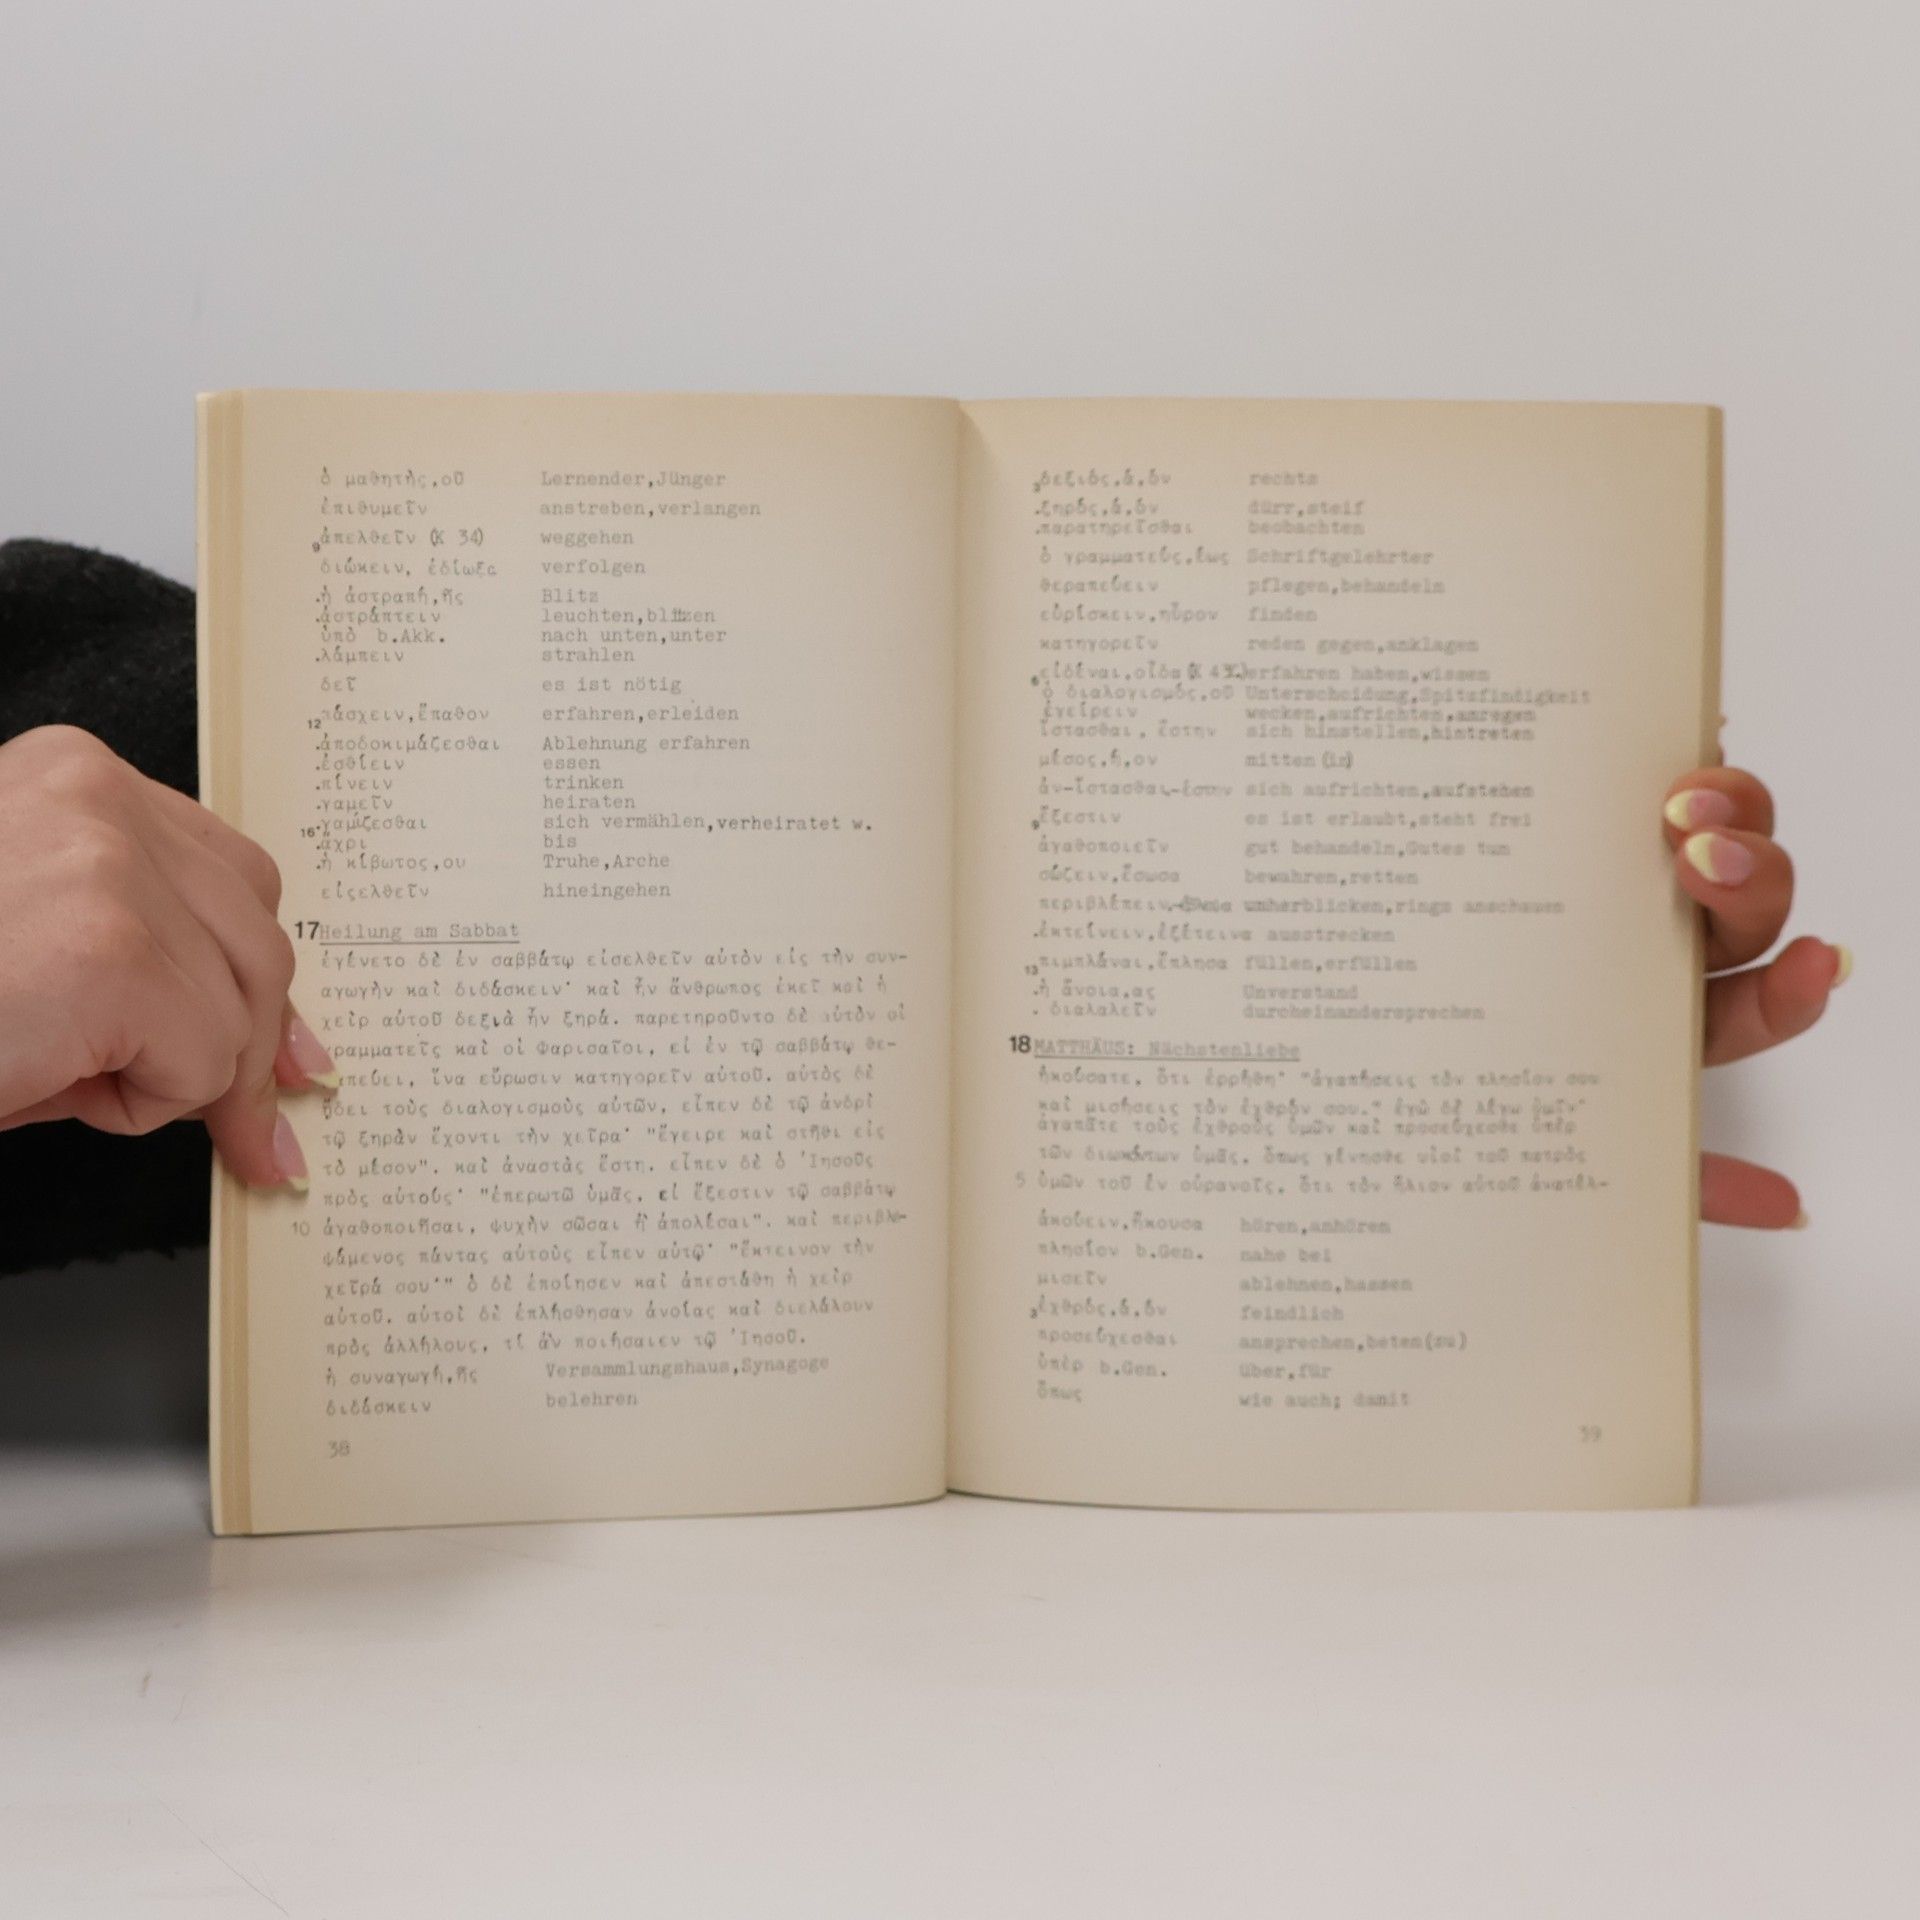 ὁ μαθητὴς,οῦ Lernender,Jünger
ἐπιθυμεῖν anstreben,verlangen
9 ἀπελθεῖν (K 34) weggehen
διώκειν, ἐδίωξα verfolgen
.ἡ ἀστραπή,ῆς Blitz
.ἀστράπτειν leuchten,blitzen
ὑπὸ b.Akk. nach unten,unter
.λάμπειν strahlen
δεῖ es ist nötig
12 πάσχειν,ἔπαθον erfahren,erleiden
.ἀποδοκιμάζεσθαι Ablehnung erfahren
.ἐσθίειν essen
.πίνειν trinken
.γαμεῖν heiraten
16 .γαμίζεσθαι sich vermählen,verheiratet w.
.ἄχρι bis
.ἡ κίβωτος,ου Truhe,Arche
εἰςελθεῖν hineingehen
17 Heilung am Sabbat
ἐγένετο δὲ ἐν σαββάτῳ εἰσελθεῖν αὐτὸν εἰς τὴν συν-
αγωγὴν καὶ διδάσκειν· καὶ ἦν ἄνθρωπος ἐκεῖ καὶ ἡ
χεὶρ αὐτοῦ δεξιὰ ἦν ξηρά. παρετηροῦντο δὲ αὐτὸν οἱ
γραμματεῖς καὶ οἱ Φαρισαῖοι, εἰ ἐν τῷ σαββάτῳ θε-
απεύει, ἵνα εὕρωσιν κατηγορεῖν αὐτοῦ. αὐτὸς δὲ
ᾔδει τοὺς διαλογισμοὺς αὐτῶν, εἶπεν δὲ τῷ ἀνδρὶ
τῷ ξηρὰν ἔχοντι τὴν χεῖρα· "ἔγειρε καὶ στῆθι εἰς
τὸ μέσον". καὶ ἀναστὰς ἔστη. εἶπεν δὲ ὁ Ἰησοῦς
πρὸς αὐτούς· "ἐπερωτῶ ὑμᾶς, εἰ ἔξεστιν τῷ σαββάτῳ
10 ἀγαθοποιῆσαι, ψυχὴν σῶσαι ἢ ἀπολέσαι". καὶ περιβλε-
ψάμενος πάντας αὐτοὺς εἶπεν αὐτῷ· "ἔκτεινον τὴν
χεῖρά σου·" ὁ δὲ ἐποίησεν καὶ ἀπεστάθη ἡ χεὶρ
αὐτοῦ. αὐτοὶ δὲ ἐπλήσθησαν ἀνοίας καὶ διελάλουν
πρὸς ἀλλήλους, τί ἂν ποιήσαιεν τῷ Ἰησοῦ.
ἡ συναγωγή,ῆς Versammlungshaus,Synagoge
διδάσκειν belehren
38
3 δεξιός,ά,όν rechts
.ξηρός,ά,όν dürr,steif
.παρατηρεῖσθαι beobachten
ὁ γραμματεύς,έως Schriftgelehrter
θεραπεύειν pflegen,behandeln
εὑρίσκειν,ηὗρον finden
κατηγορεῖν reden gegen,anklagen
6 εἰδέναι,οἶδα erfahren haben,wissen
ὁ διαλογισμός,οῦ Unterscheidung,Spitzfindigkeit
ἐγείρειν wecken,aufrichten,anregen
ἵστασθαι, ἔστην sich hinstellen,hintreten
μέσος,η,ον mitten(in)
ἀν-ίστασθαι,-έστην sich aufrichten,aufstehen
9 ἔξεστιν es ist erlaubt,steht frei
ἀγαθοποιεῖν gut behandeln,Gutes tun
σώζειν,ἔσωσα bewahren,retten
περιβλέπειν umherblicken,rings anschauen
.ἐκτείνειν,ἐξέτεινα ausstrecken
13 πιμπλάναι,ἔπλησα füllen,erfüllen
.ἡ ἄνοια,ας Unverstand
. διαλαλεῖν durcheinandersprechen
18 MATTHÄUS: Nächstenliebe
ἠκούσατε, ὅτι ἐρρήθη· "ἀγαπήσεις τὸν πλησίον σου
καὶ μισήσεις τὸν ἐχθρόν σου." ἐγὼ δὲ λέγω ὑμῖν·
ἀγαπᾶτε τοὺς ἐχθροὺς ὑμῶν καὶ προσεύχεσθε ὑπὲρ
τῶν διωκόντων ὑμᾶς, ὅπως γένησθε υἱοὶ τοῦ πατρὸς
5 ὑμῶν τοῦ ἐν οὐρανοῖς, ὅτι τὸν ἥλιον αὐτοῦ ἀνατέλ-
ἀκούειν,ἤκουσα hören,anhören
πλησίον b.Gen. nahe bei
μισεῖν ablehnen,hassen
3 ἐχθρός,ά,όν feindlich
προσεύχεσθαι ansprechen,beten(zu)
ὑπὲρ b.Gen. über,für
ὅπως wie auch; damit
39